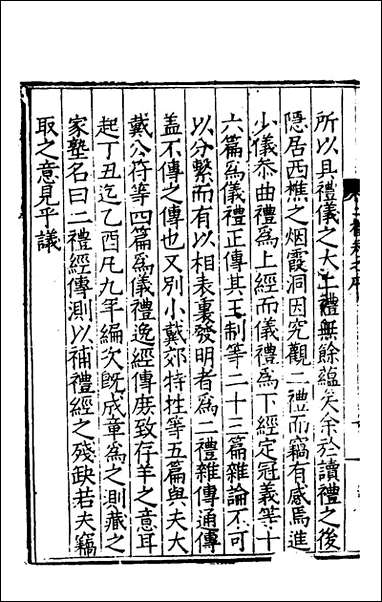 所以具禮儀之大二禮無餘蘊矣余於讀禮之後
隱居西樵之烟霞洞因究觀二禮而竊有感焉進
少儀叅曲禮爲上經而儀禮爲下經定冠義等十
六篇爲儀禮正傳其王制等二十三篇雜論不可
以分繫而有以相表裏發明者爲二禮雜傳通傳
盖不傳之傳也又别小戴郊特牲等五篇與夫大
戴公符等四篇爲儀禮逸經傳庻致存羊之意耳
起丁丑迄乙酉凡九年編次旣成章爲之測藏之
家塾名曰二禮經傳測以補禮經之殘缺若夫竊
取之意見乎議